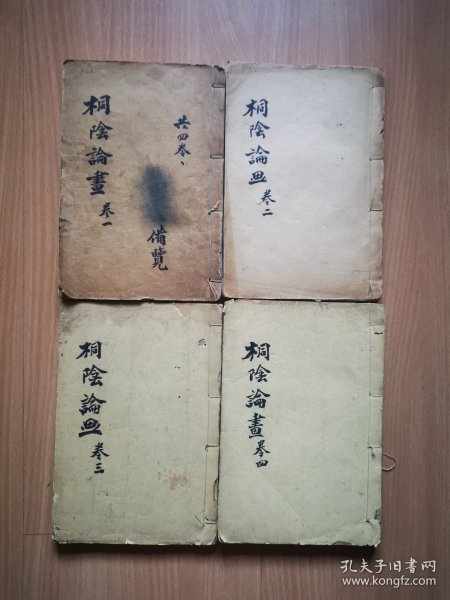 桐陰論畫 卷一
共四卷、
備覽
桐陰論画 卷二
桐陰論画 卷三
桐陰論畫 卷四
孔夫子旧书网
www.kongfz.com